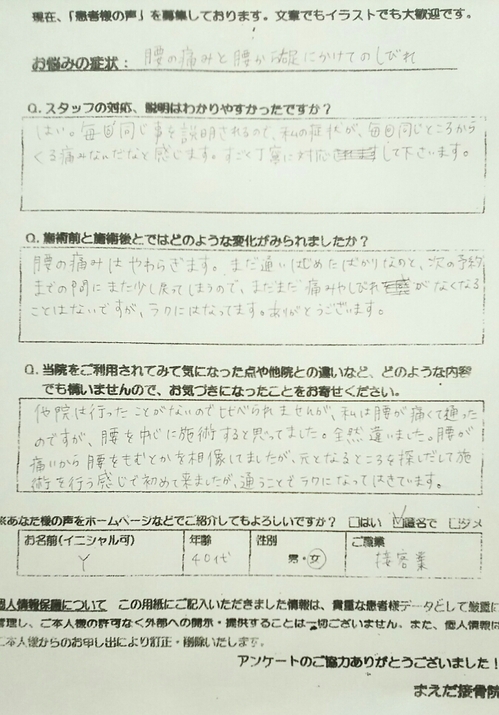 現在、「患者様の声」を募集しております。文章でもイラストでも大歓迎です。
お悩みの症状： 腰の痛みと腰から右足にかけてのしびれ
Q. スタッフの対応、説明はわかりやすかったですか？
はい。毎回同じ事を説明されるので、私の症状が、毎回同じところから
くる痛みなんだなと感じます。すごく丁寧に対応して下さいます。
Q. 施術前と施術後とではどのような変化がみられましたか？
腰の痛みはやわらぎます。まだ通いはじめたばかりなのと、次の予約
までの間にまた少し戻ってしまうので、まだまだ痛みやしびれがなくなる
ことはないですが、ラクにはなってます。ありがとうございます。
Q. 当院をご利用されてみて気になった点や他院との違いなど、どのような内容
でも構いませんので、お気づきになったことをお寄せください。
他院は行ったことがないので比べられませんが、私は腰が痛くて通った
のですが、腰を中心に施術すると思ってました。全然違いました。腰が
痛いから腰をもむとかを想像してましたが、元となるところを探しだして施
術を行う感じで初めて来ましたが、通うごとにラクになってはきています。
※あなた様の声をホームページなどでご紹介してもよろしいですか？ □はい ☑匿名で □ダメ
お名前（イニシャル可） 年齢 性別 ご職業
Y 40代 男・女 接客業
個人情報保護について この用紙にご記入いただきました情報は、貴重な患者様データとして厳重に
管理し、ご本人様の許可なく外部への開示・提供することは一切ございません。また、個人情報は
ご本人様からのお申し出により訂正・削除いたします。
アンケートのご協力ありがとうございました！
まえだ接骨院